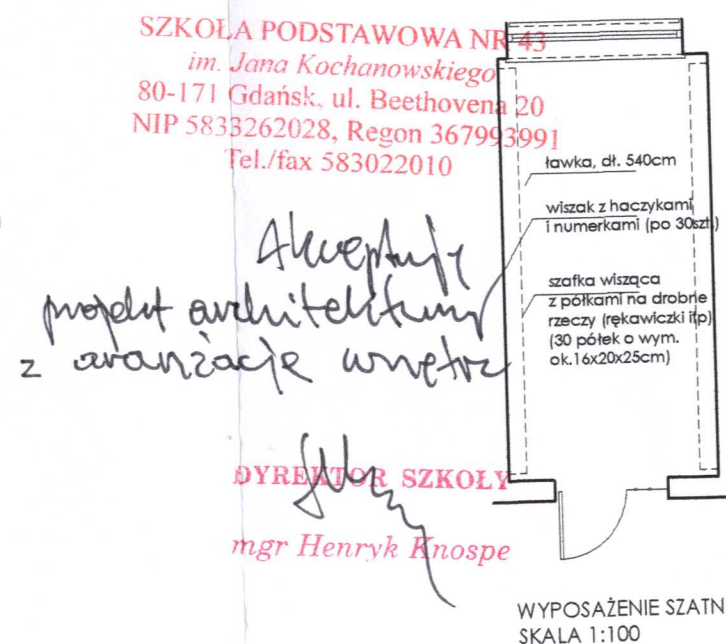 SZKOŁA PODSTAWOWA NR 43
im. Jana Kochanowskiego
80-171 Gdańsk, ul. Beethovena 20
NIP 5833262028, Regon 367993991
Tel./fax 583022010
Akceptuję
projekt architektury
z aranżacją wnętrz
DYREKTOR SZKOŁY
mgr Henryk Knospe
ławka, dł. 540cm
wiszak z haczykami
i numerkami (po 30szt.)
szafka wisząca
z półkami na drobne
rzeczy (rękawiczki itp)
(30 półek o wym.
ok.16x20x25cm)
WYPOSAŻENIE SZATN
SKALA 1:100